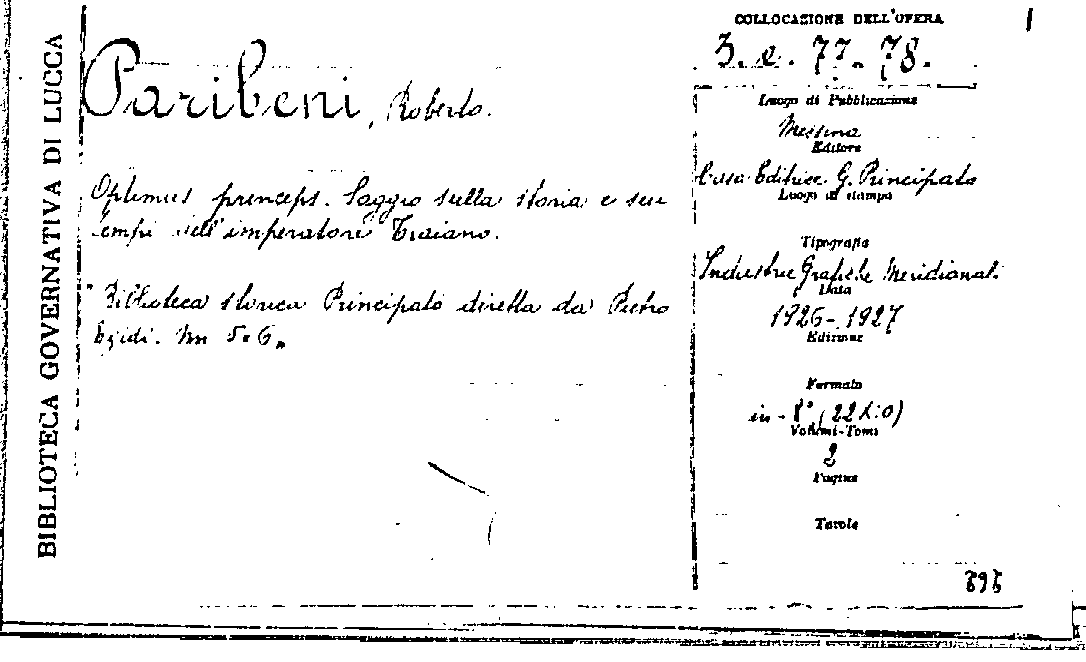 BIBLIOTECA GOVERNATIVA DI LUCCA
Paribeni, Roberto.
Optimus princeps. Saggio sulla storia e sui
tempi dell'imperatore Traiano.
"Biblioteca storica Principato diretta da Pietro
Egidi. Nn 5-6"
COLLOCAZIONE DELL'OPERA
3. e. 77. - 78.
Luogo di Pubblicazione
Messina
Editore
Casa Editrice G. Principato
Luogo di stampa
Tipografia
Industrie Grafiche Meridionali
Data
1926-1927
Edizione
Formato
in-8°
Volumi-Tomi
2
Pagine
Tavole